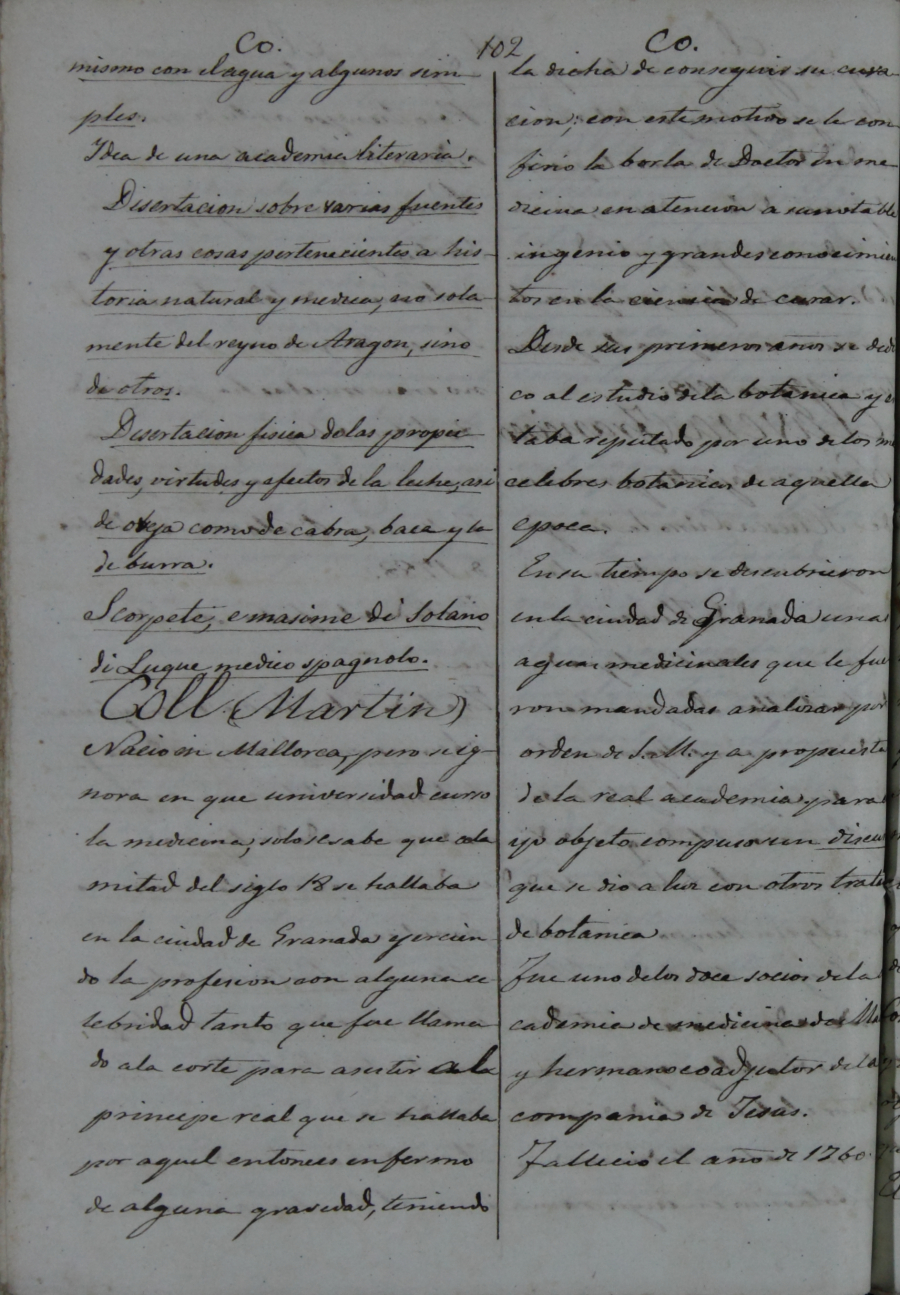 Co.
102
Co.
mismo con el agua y algunos sim-
ples.
Idea de una academia literaria.
Disertacion sobre varias fuentes
y otras cosas pertenecientes a his-
toria natural y medica, no sola-
mente del reyno de Aragon, sino
de otros.
Disertacion fisica de las propie-
dades, virtudes y efectos de la leche, asi
de oveja como de cabra, baca y la
de burra.
Scorpete, e masime di Solano
di Luque medico spagnolo.
Coll (Martin)
Nacio en Mallorca, pero se ig-
nora en que universidad curso
la medicina, solo se sabe que a la
mitad del siglo 18 se hallaba
en la ciudad de Granada ejercien
do la profesion con alguna ce
lebridad tanto que fue llama
do a la corte para asistir a la
principe real que se hallaba
por aquel entonces enfermo
de alguna gravedad, teniendo
la dicha de conseguir su cura-
cion; con este motivo se le con
firio la borla de Doctor en me
dicina en atencion a su notable
ingenio y grandes conocimien
tos en la ciencia de curar.
Desde sus primeros años se dedi
co al estudio de la botanica y
taba reputado por uno de los
celebres botanicos de aquella
epoca.
En su tiempo se descubrieron
en la ciudad de Granada unas
aguas medicinales que le fue
ron mandadas analizar por
orden de S. M. y a propuesta
de la real academia, para
yo objeto compuso un discur
que se dio a luz con otros trata
de botanica
Fue uno de los doce socios de la
cademia de medicina de
y hermano coadjutor de la
compania de Jesus.
Fallecio el año de 1760.